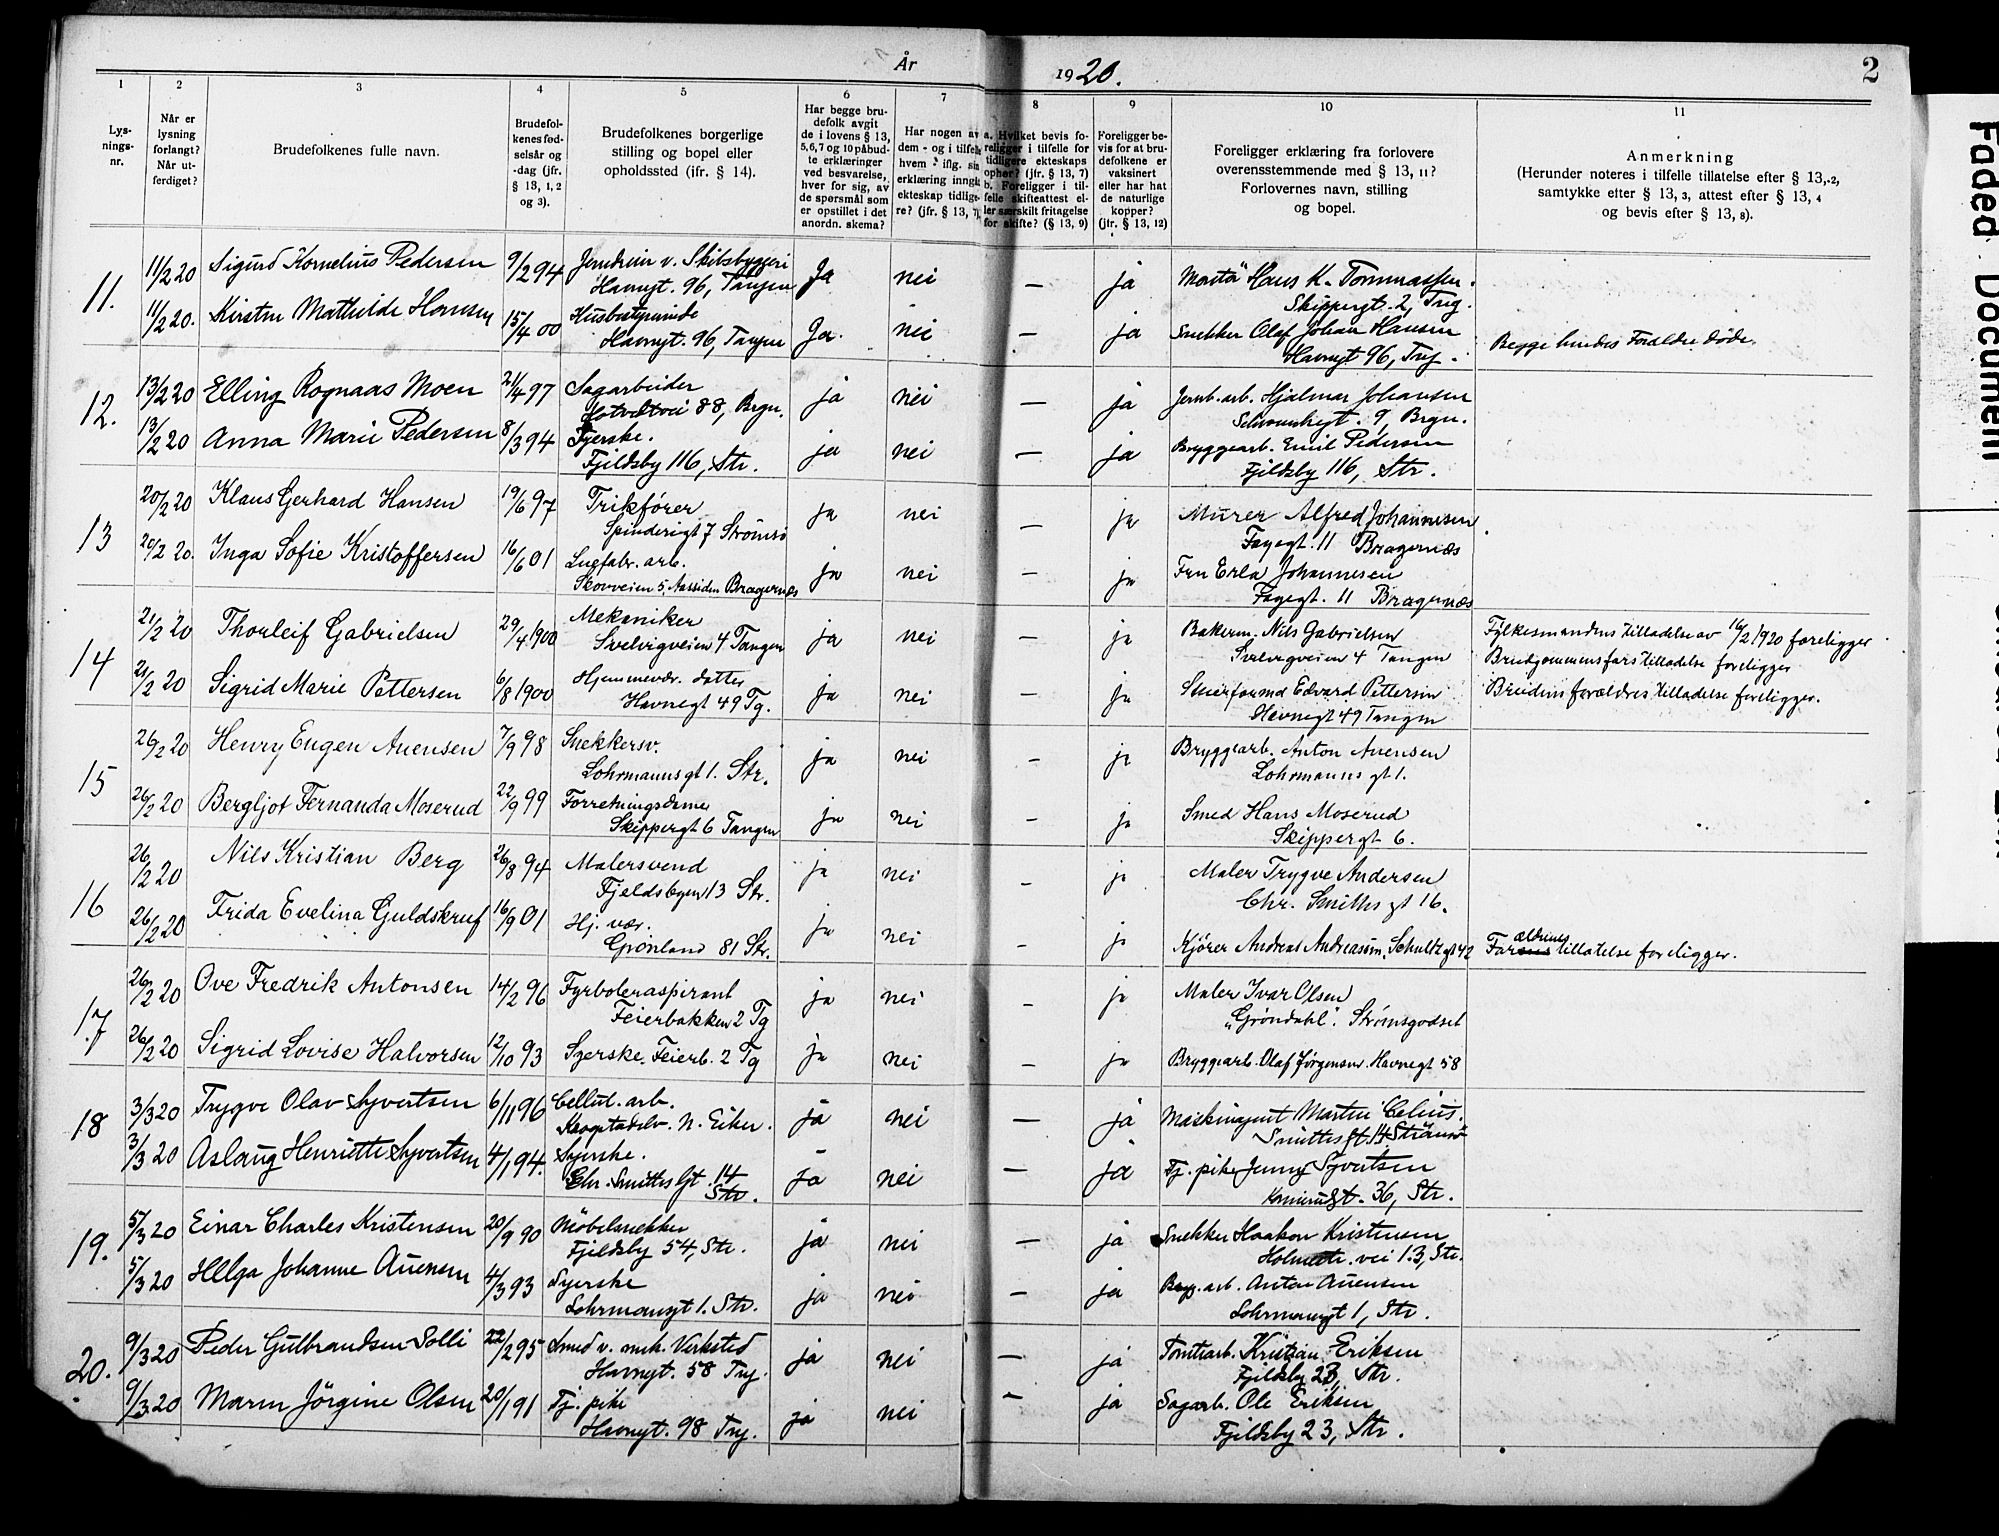 År 1920.
2
1
2
3
4
5
6
7
8
9
10
11
Lys-
nings-
nr.
Når er
lysning
forlangt?
Når ut-
ferdiget?
Brudefolkenes fulle navn.
Brudefol-
kenes fød-
selsår og
-dag (jfr.
§ 13, 1, 2
og 3).
Brudefolkenes borgerlige
stilling og bopel eller
opholdssted (ifr. § 14).
Har begge bru-
defolk avgit
de i lovens § 13,
5,6,7 og 10 påbud-
te erklæringer
ved besvarelse,
hver for sig, av
de spørsmål som
er opstillet i det
anordn. skema?
Har nogen av
dem - og i tilfelle
hvem - iflg. sin
erklæring inngått
ekteskap tidlige-
re? (jfr. § 13, 7)
a. Hvilket bevis fo-
religger i tilfelle for
tidligere ekteskaps
ophør? (jfr. § 13, 7)
b. Foreligger i til-
felle skifteattest el-
ler særskilt fritagelse
for skifte? (§ 13, 9)
Foreligger be-
vis for at bru-
defolkene er
vaksinert
eller har hat
de naturlige
kopper?
(jfr. § 13, 12)
Foreligger erklæring fra forlovere
overensstemmende med § 13, 11?
Forlovernes navn, stilling
og bopel.
Anmerkning
(Herunder noteres i tilfelle tillatelse efter § 13, 2,
samtykke efter § 13, 3, attest efter § 13, 4
og bevis efter § 13, 8).
11.
11/2 20 Sigurd Kornelius Pedersen 9/2 94 Jerndreier v. Skibsbyggeri Ja nei — ja Montör Hans K. Tommassen.
Havnegt. 96, Tangen Skippergt. 2, Tng.
11/2 20. Kirstin Mathilde Hansen 15/4 00 Husbestyrerinde Ja. nei — ja Snekker Olaf Johan Hansen Begge hindes Forældre døde.
Havnegt. 96, Tangen Havnegt 96, Tng.
12.
13/2 20 Elling Rognaas Moen 21/4 97 Sagarbeider ja nei — ja Jernb.arb. Hjalmar Johansen
Hotvetvei 88, Brgn. 9, Brgn.
13/2 20 Anna Marie Pedersen 8/3 94 Syerske. ja nei — ja Bryggearb. Emil Pedersen
Fjeldsby 116, Str. Fjeldsby 116, Str.
13
20/2 20 Klaus Gerhard Hansen 19/6 97 Trikfører ja nei — ja Murer Alfred Johannesen
Spinderigt 7 Strømsö Fayegt. 11 Bragernæs
20/2 20. Inga Sofie Kristoffersen 16/6 01 arb. ja nei — ja Fru Erla Johannesen
Skovveien 5, Aassiden Bragernæs Fayegt. 11 Bragernæs
14
21/2 20 Thorleif Gabrielsen 29/4 1900 Mekaniker ja nei — ja Bakerm. Nils Gabrielsen Fylkesmandens tilladelse av 16/2 1920 foreligger
Svelvigveien 4 Tangen Svelvigveien 4 Tangen Brudgommens fars tilladelse foreligger
21/2 20 Sigrid Marie Pettersen 6/8 1900 Hjemmevær. datter ja nei — ja Edvard Pettersen Brudens forældres tilladelse foreligger.
Havnegt 49 Tg. Havnegt 49 Tangen
15
26/2 20 Henry Eugen Auensen 7/9 98 Snekkersv. ja nei — ja Bryggearb. Anton Auensen
Lohrmanns gt 1. Str. Lohrmanns gt 1.
26/2 20 Bergljot Fernanda Moserud 22/9 99 Forretningsdame ja nei — ja Smed Hans Moserud
Skippergt 6 Tangen Skippergt 6.
16
26/2 20 Nils Kristian Berg 26/8 94 Malersvend ja nei — ja Maler Trygve Andersen
Fjeldsbyen 13 Str. Chr. Smiths gt 16.
26/2 20 Frida Evelina Guldskruf 16/9 01 Hj. vær. ja nei — ja Kjörer Andreas Andreassen, Schultzgt 42 Forældrenes tillatelse foreligger.
Grønland 81 Str.
17
26/2 20 Ove Fredrik Antonsen 14/2 96 Fyrbøteraspirant ja nei — ja Maler Ivar Olsen
Feierbakken 2 Tg "Gröndahl". Strömsgodset
26/2 20 Sigrid Lovise Halvorsen 12/10 93 Syerske. Feierb. 2 Tg ja nei — ja Bryggearb. Olaf Jørgensen. Havnegt 58
18
3/3 20 Trygve Olav Syvertsen 6/11 96 Cellul. arb. ja nei — ja Martin Celius.
N. Eiker. Smithsgt. 14 Strömsö
3/3 20 Aslaug Henriette Syvertsen 4/1 94. Syerske. ja nei — ja Tj. pike Jenny Syvertsen
Chr. Smiths Gt. 14 Str. 36, Str.
19.
5/3 20 Einar Charles Kristensen 20/9 90 Möbelsnekker ja nei — ja Snekker Haakon Kristensen
Fjeldsby 54, Str. vei 13, Str.
5/3 20 Helga Johanne Auensen 4/3 93 Syerske ja nei — ja Bryg. arb. Anton Auensen
Lohrmansgt 1. Str. Lohrmansgt 1, Str.
20.
9/3 20 Peder Gulbrandsen Solli 22/2 95 Smed v. mek. Verksted ja nei — ja Tomtearb. Kristian Eriksen
Havnegt. 58 Tng. Fjeldsby 23, Str.
9/3 20 Maren Jörgine Olsen 20/1 91 Tj. pike ja nei — ja Sagarb. Ole Eriksen
Havnegt. 98 Tng. Fjeldsby 23, Str.
Faded Document